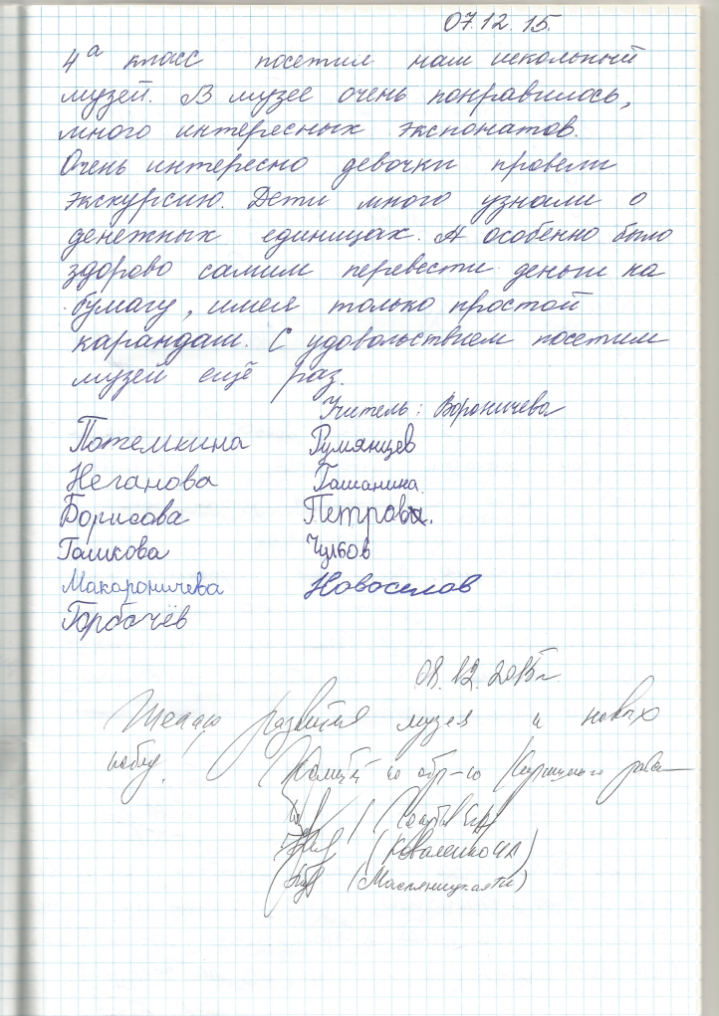 07.12.15.
4а класс посетил наш школьный
музей. В музее очень понравилось,
много интересных экспонатов.
Очень интересно девочки провели
экскурсию. Дети много узнали о
денежных единицах. А особенно было
здорово самим перевести деньги на
бумагу, имея только простой
карандаш. С удовольствием посетим
музей ещё раз.
Учитель: Вороничева
Потемкина Румянцев
Неганова Гашанина.
Борисова Петрова.
Гашкова Чулков
Макароничева Новоселов
Горбачёв
08.12.2015г
Желаю развития музея и новых
побед!
Комитет по обр-ю района
(Коваленко
(Масляницкая